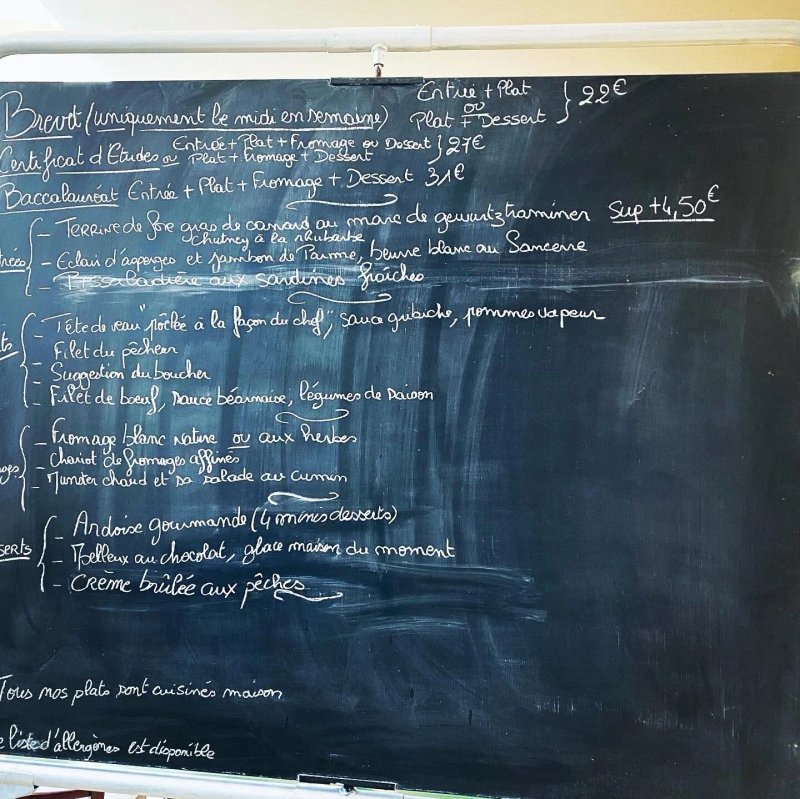 Brevet (uniquement le midi en semaine) Entrée + Plat
ou
Plat + Dessert } 22€
Certificat d'Etudes Entrée + Plat + Fromage ou Dessert } 27€
ou Plat + Fromage + Dessert
Baccalauréat Entrée + Plat + Fromage + Dessert 31€
- Terrine de foie gras de canard au marc de gewurtztraminer Sup +4,50€
chutney à la rhubarbe
- Eclair d'asperges et jambon de Parme, beurre blanc au Sancerre
- Pissaladière aux sardines fraîches
- Tête de veau "poêlée à la façon du chef", sauce gribiche, pommes vapeur
- Filet du pêcheur
- Suggestion du boucher
- Filet de boeuf, sauce béarnaise, légumes de saison
- Fromage blanc nature ou aux herbes
- Chariot de fromages affinés
- Munster chaud et sa salade au cumin
- Ardoise gourmande (4 minis desserts)
serts - Moelleux au chocolat, glace maison du moment
- Crème brûlée aux pêches
Tous nos plats sont cuisinés maison
e liste d'allergènes est disponible